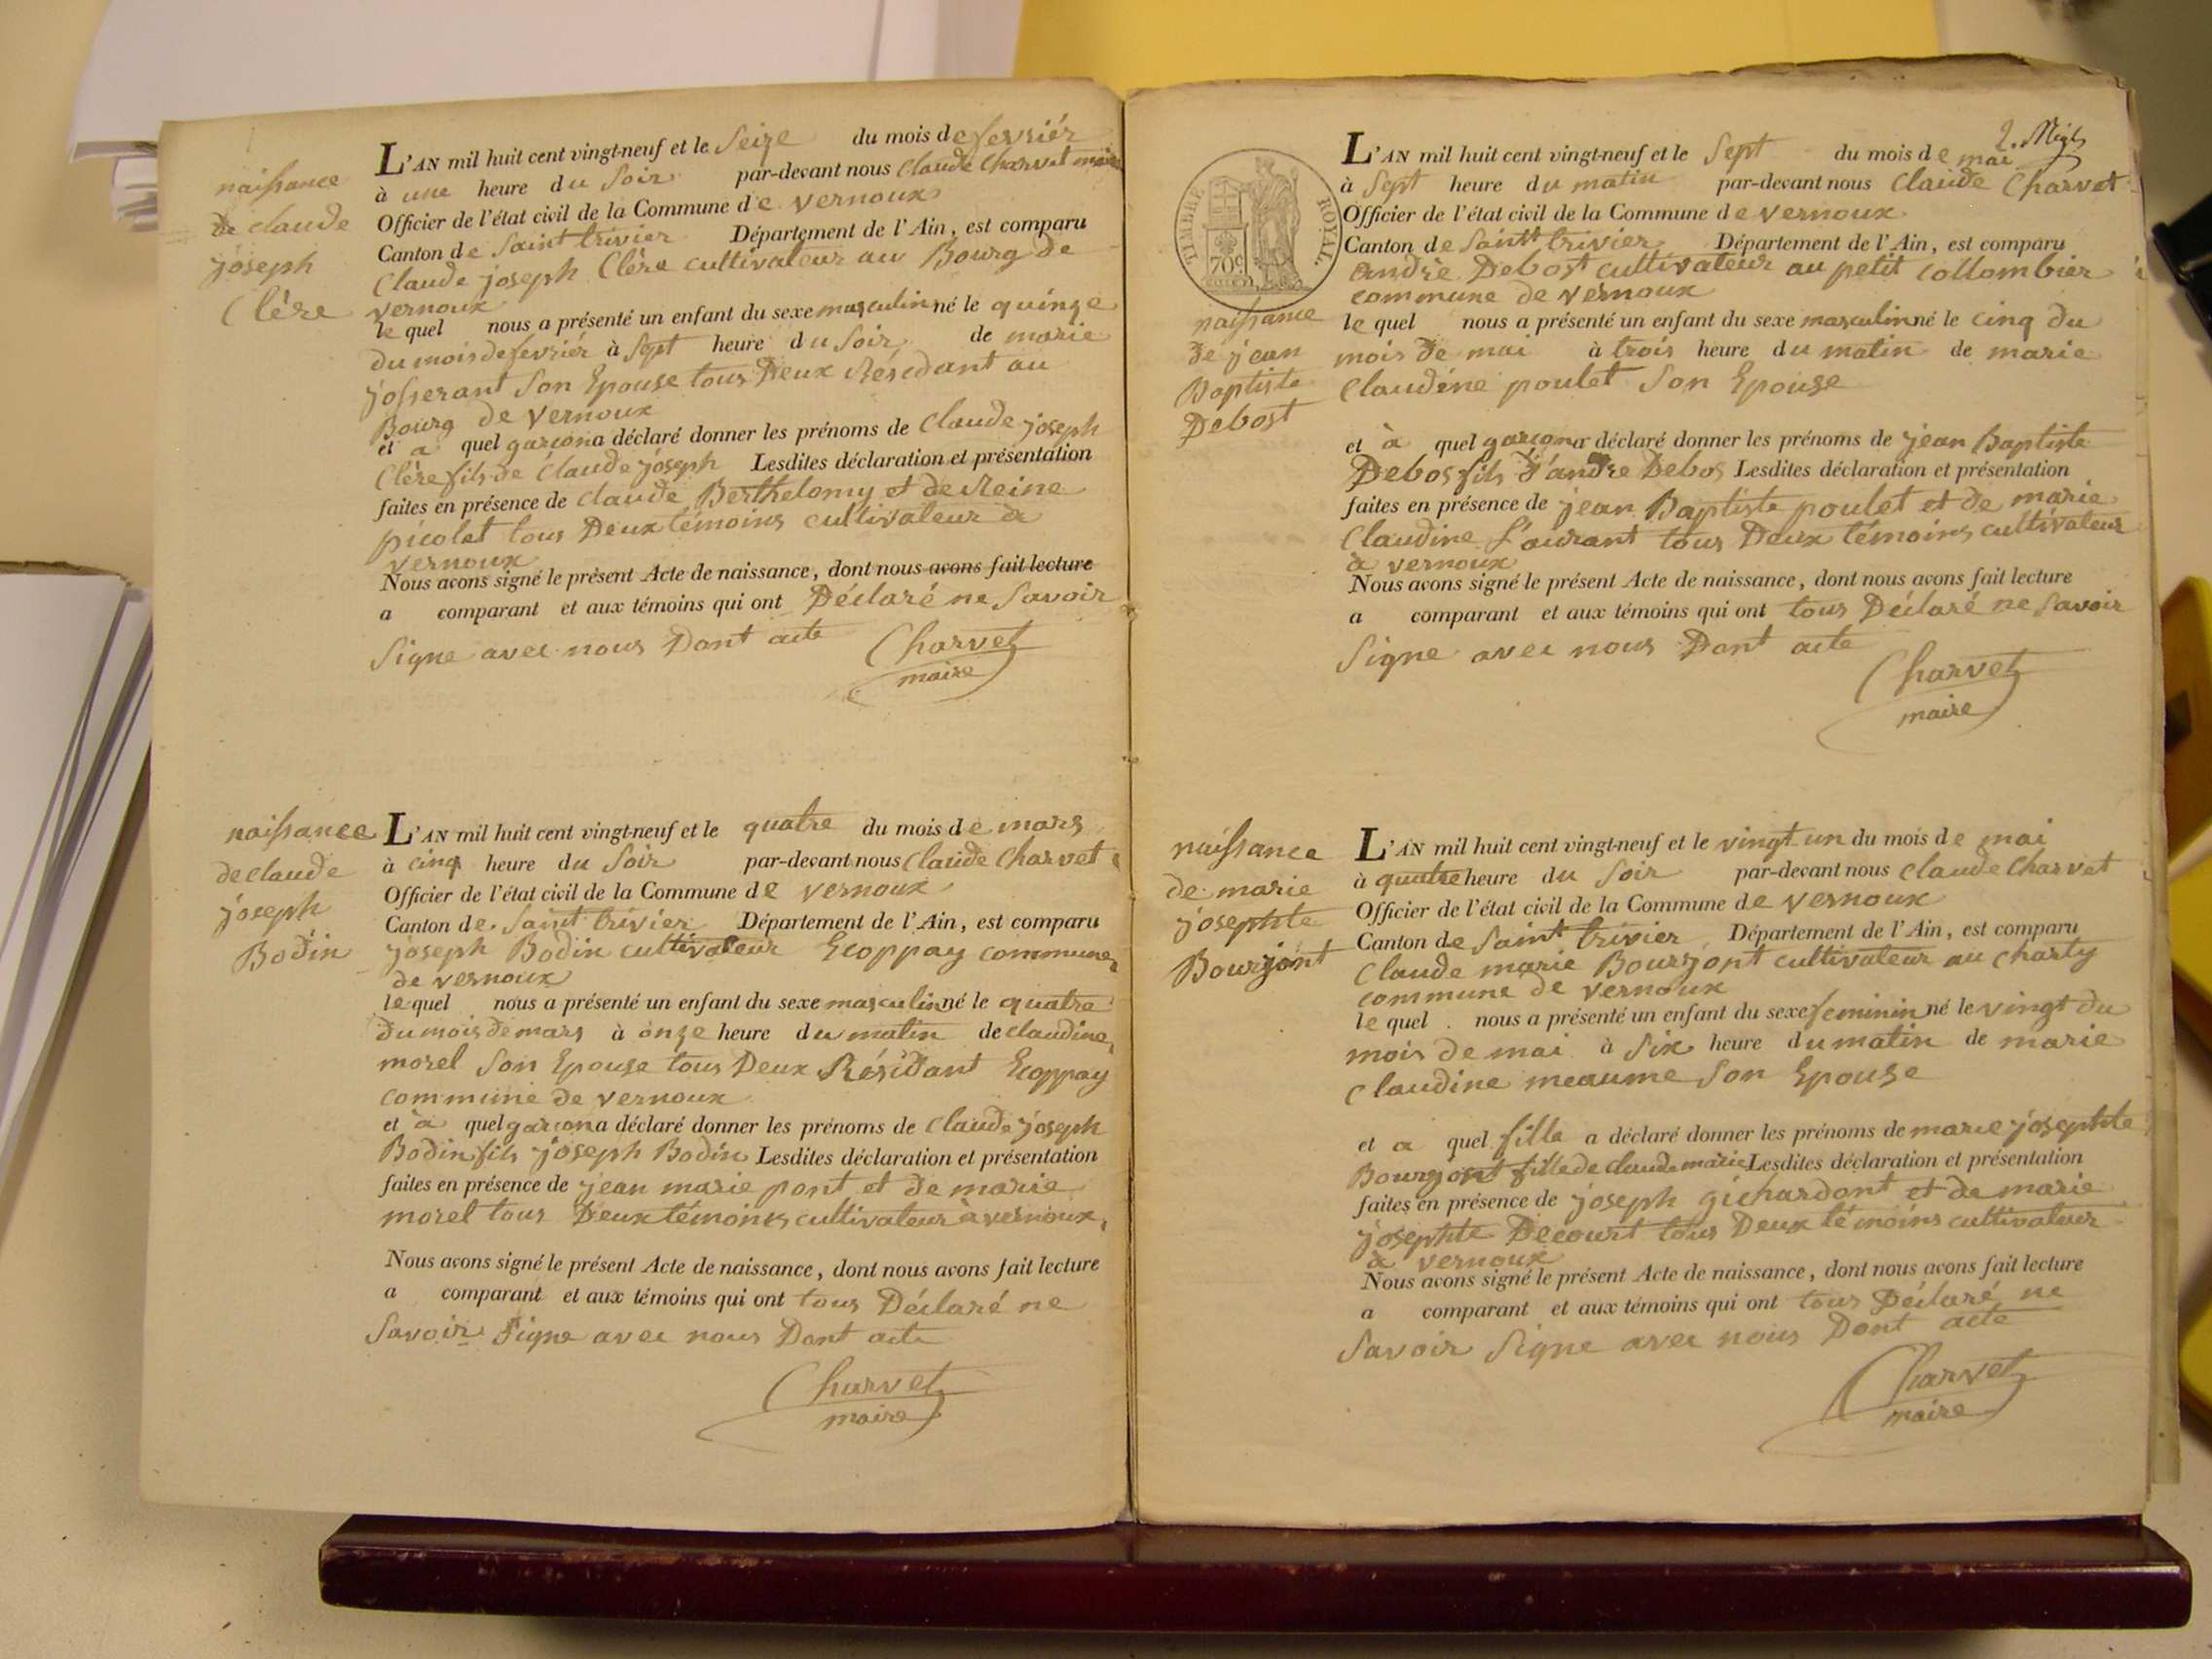 naissance
de claude
joseph
Clère
L'AN mil huit cent vingt-neuf et le Seize du mois de fevriér
à une heure du Soir par-devant nous Claude Charvet maire
Officier de l'état civil de la Commune de vernoux
Canton de Saint trivier Département de l'Ain, est comparu
Claude joseph Clère cultivateur au Bourg de
vernoux
le quel nous a présenté un enfant du sexe masculin né le quinze
du mois de fevriér à Sept heure du Soir de marie
josserant Son Epouse tous Deux Résidant au
Bourg de vernoux
et a quel garçon a déclaré donner les prénoms de Claude joseph
Clère fils de Claude joseph Lesdites déclaration et présentation
faites en présence de claude Berthelomy et de Reine
picolet tous Deux témoins cultivateur à
vernoux
Nous avons signé le présent Acte de naissance, dont nous avons fait lecture
a comparant et aux témoins qui ont Déclaré ne Savoir
Signe avec nous Dont acte Charvet
maire
naissance
de claude
joseph
Bodin
L'AN mil huit cent vingt-neuf et le quatre du mois de mars
à cinq heure du Soir par-devant nous Claude Charvet
Officier de l'état civil de la Commune de vernoux
Canton de Saint trivier Département de l'Ain, est comparu
joseph Bodin cultivateur Ecoppay commune
de vernoux
le quel nous a présenté un enfant du sexe masculin né le quatre
du mois de mars à onze heure du matin de claudine
morel Son Epouse tous Deux Résidant Ecoppay
commune de vernoux
et à quel garçon a déclaré donner les prénoms de Claude joseph
Bodin fils joseph Bodin Lesdites déclaration et présentation
faites en présence de jean marie pont et de marie
morel tous Deux témoins cultivateur à vernoux
Nous avons signé le présent Acte de naissance, dont nous avons fait lecture
a comparant et aux témoins qui ont tous Déclaré ne
Savoir Signe avec nous Dont acte
Charvet
maire
TIMBRE ROYAL
70c
2.
L'AN mil huit cent vingt-neuf et le Sept du mois de mai
à Sept heure du matin par-devant nous Claude Charvet
Officier de l'état civil de la Commune de vernoux
Canton de Saintt trivier Département de l'Ain, est comparu
andrie Debost cultivateur au petit collombier
commune de vernoux
naissance
de jean
Baptiste
Debost
le quel nous a présenté un enfant du sexe masculin né le cinq du
mois de mai à trois heure du matin de marie
Claudine poulet Son Epouse
et à quel garçon a déclaré donner les prénoms de jean Baptiste
Debos fils d'andre Debos Lesdites déclaration et présentation
faites en présence de jean Baptiste poulet et de marie
Claudine Laurant tous Deux témoins cultivateur
à vernoux
Nous avons signé le présent Acte de naissance, dont nous avons fait lecture
a comparant et aux témoins qui ont tous Déclaré ne Savoir
Signe avec nous Dont acte
Charvet
maire
naissance
de marie
josephte
Bourjont
L'AN mil huit cent vingt-neuf et le vingt un du mois de mai
à quatre heure du Soir par-devant nous Claude Charvet
Officier de l'état civil de la Commune de vernoux
Canton de Saint trivier Département de l'Ain, est comparu
Claude marie Bourjont cultivateur au charty
commune de vernoux
le quel nous a présenté un enfant du sexe feminin né le vingt du
mois de mai à Six heure du matin de marie
Claudine meaume Son Epouse
et a quel fille a déclaré donner les prénoms de marie josephte
Bourgjont fille de claude marie Lesdites déclaration et présentation
faites en présence de joseph gichardont et de marie
josephte Decourt tous Deux témoins cultivateur
à vernoux
Nous avons signé le présent Acte de naissance, dont nous avons fait lecture
a comparant et aux témoins qui ont tous Déclaré ne
Savoir Signe avec nous Dont acte
Charvet
maire